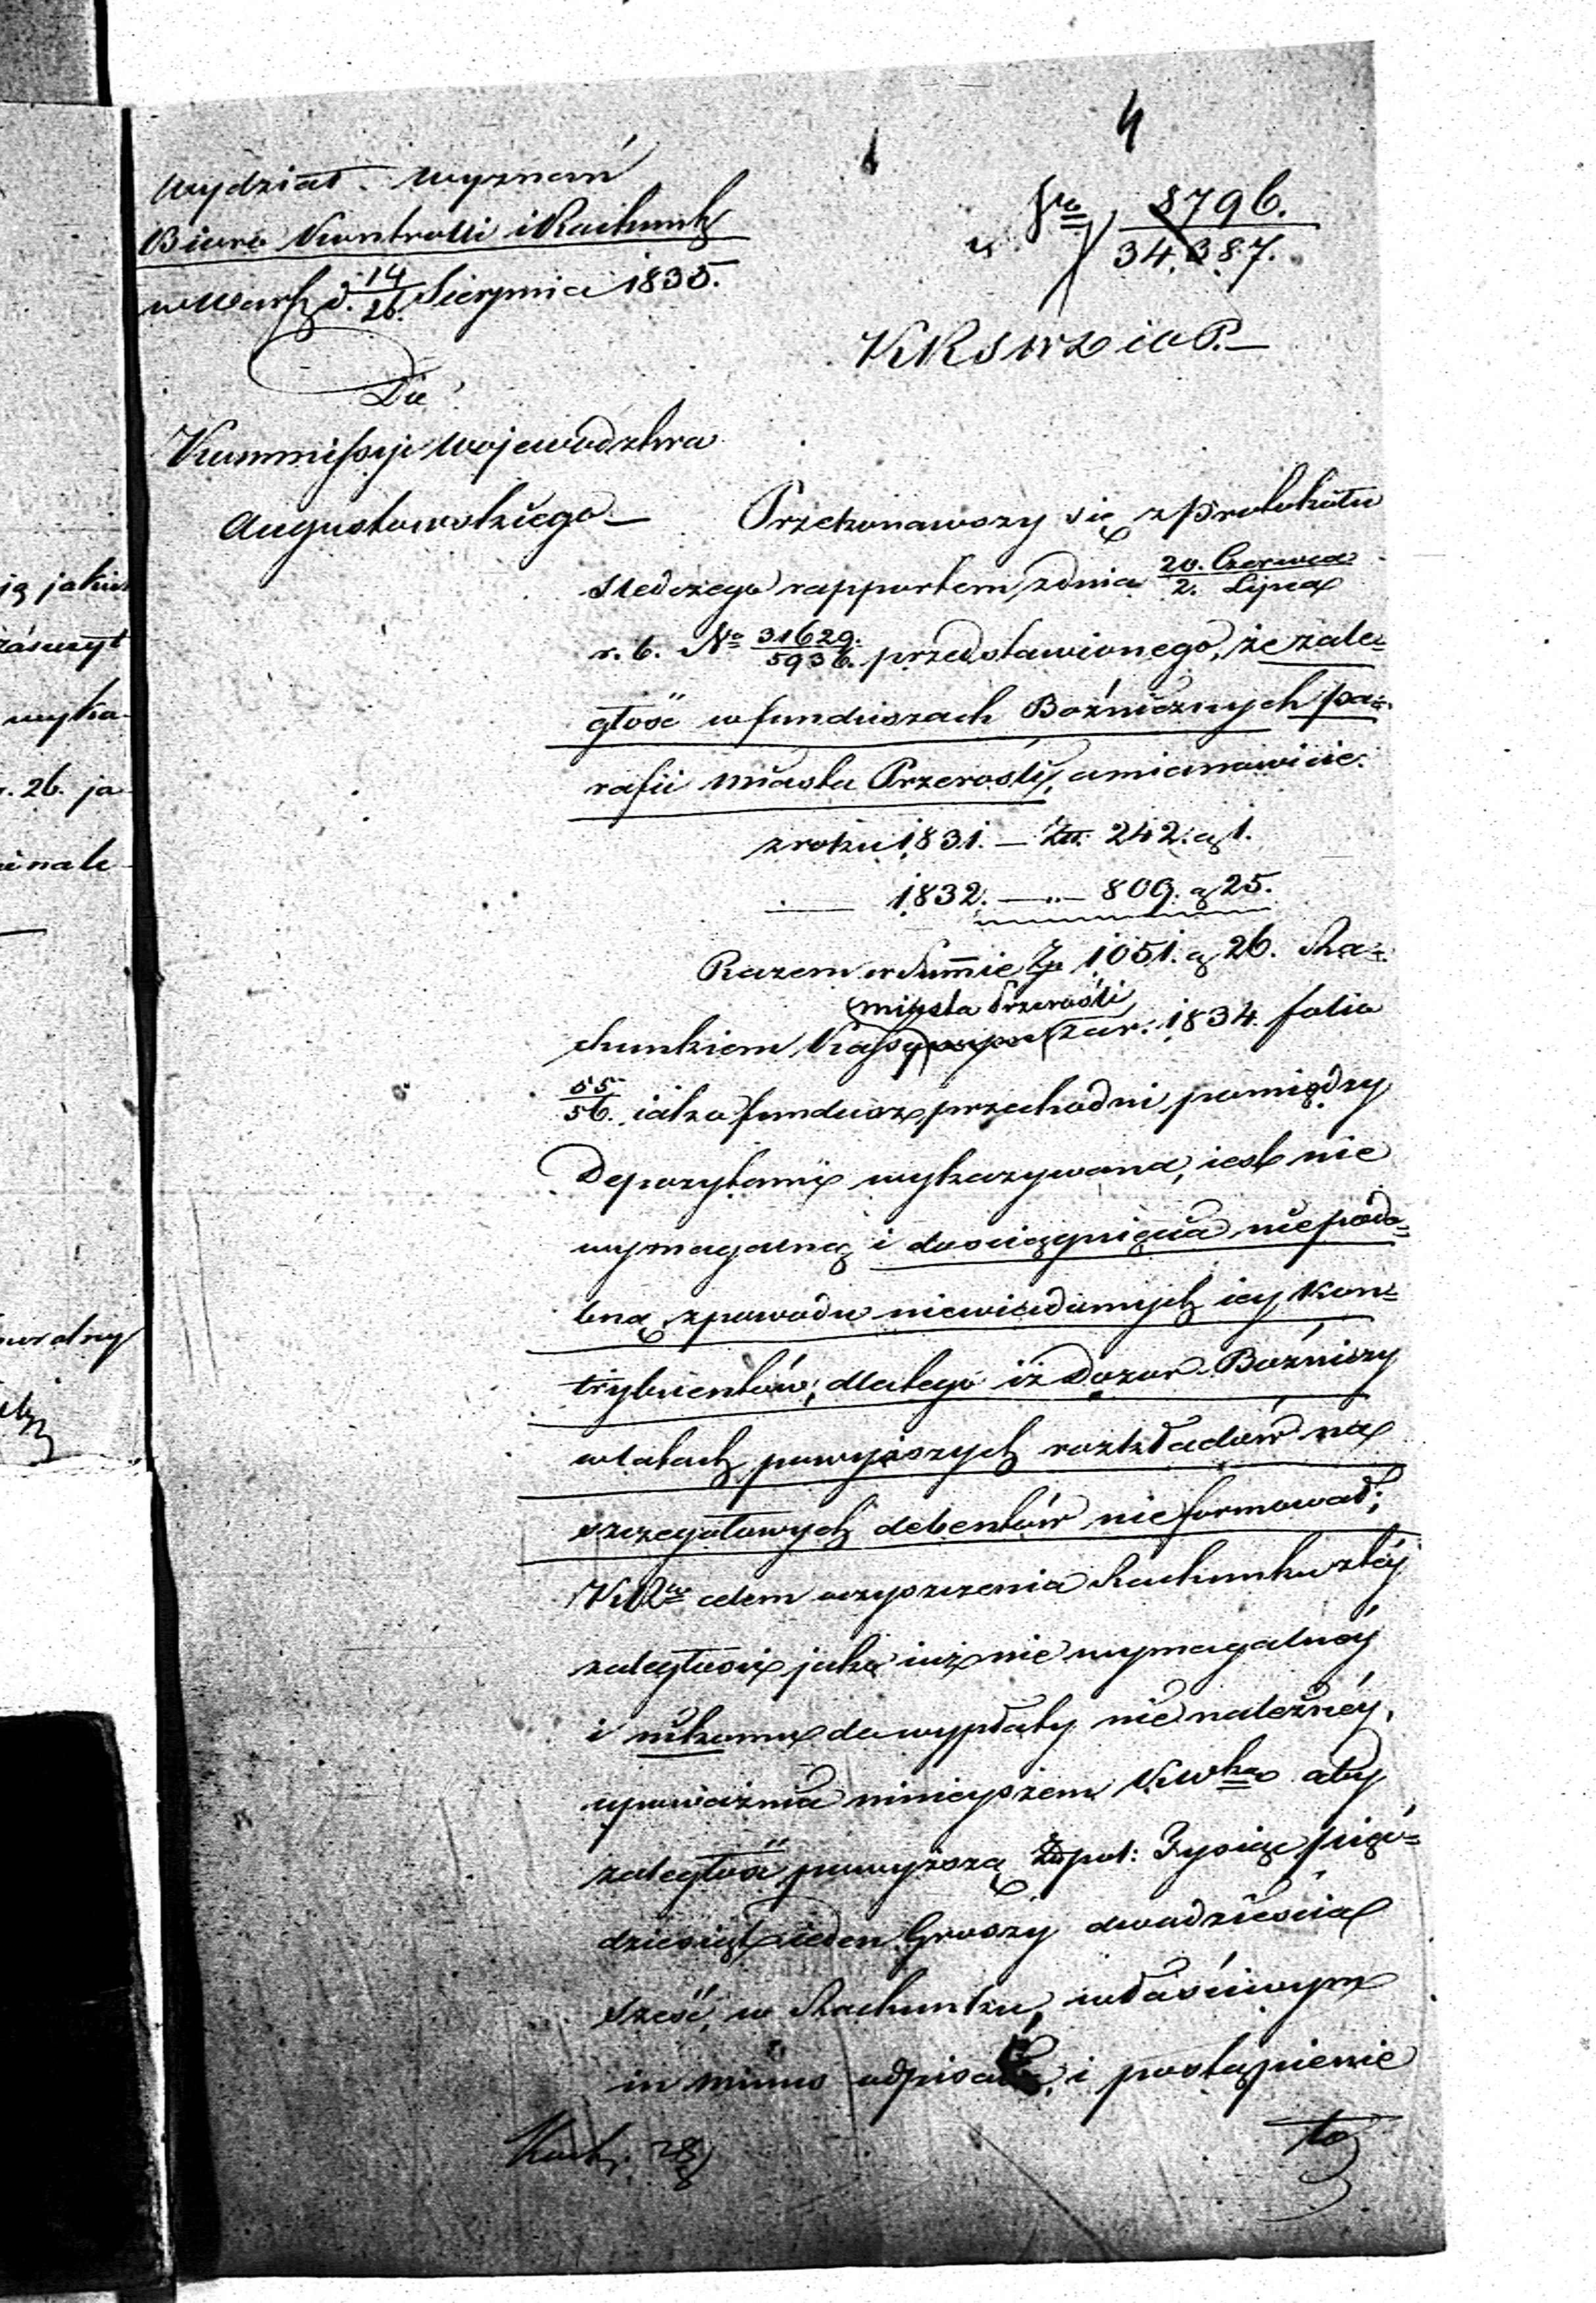 4
Wydział Wyznań
Biuro Kontrolli i Rachunk
w Warsz d. 14/26. Sierpnia 1835.
No 8796./34,387.
KRSWD i OP.
Do
Kommissyi Województwa
Augustowskiego
Przekonawszy się z protokółu
śledczego rapportem z dnia 20. Czerwca/2. Lipca
r. b. No 31629./5936. przedstawionego, że zale=
głość w funduszach Bożniczych pa=
rafii miasta Przerośli, a mianowicie:
z roku 1831. — Złt. 242. g 1.
— 1832. — „ — 809. g 25.
Razem w Summie Zp 1051. g 26. Ra=
miasta Przerośli
chunkiem Kassy za r. 1834. folio
55/56. iako fundusz przechodni pomiędzy
Depozytami wykazywana, iest nie
wymagalną i do ściągnięcia niepodo=
bną z powodu niewiadomych iey Kon=
trybuentów, dlatego iż Dozor Bożniczy
w latach powyższych rozkładów na
szczegółowych debentów nie formował;
KRwa celem oczyszczenia Rachunku z téj
zaległości jako iuż nie wymagalnéj
i nikomu do wypłaty nie należnéy,
upoważnia ninieyszem KWka aby
zaległość powyższą Złpol: Tysiąc pięć=
dziesiąt ieden Groszy dwadzieścia
sześć, w Rachunku właściwym
in minus odpisać, i postąpienie
to
ią jakie
wyka
. 26. ja
inale